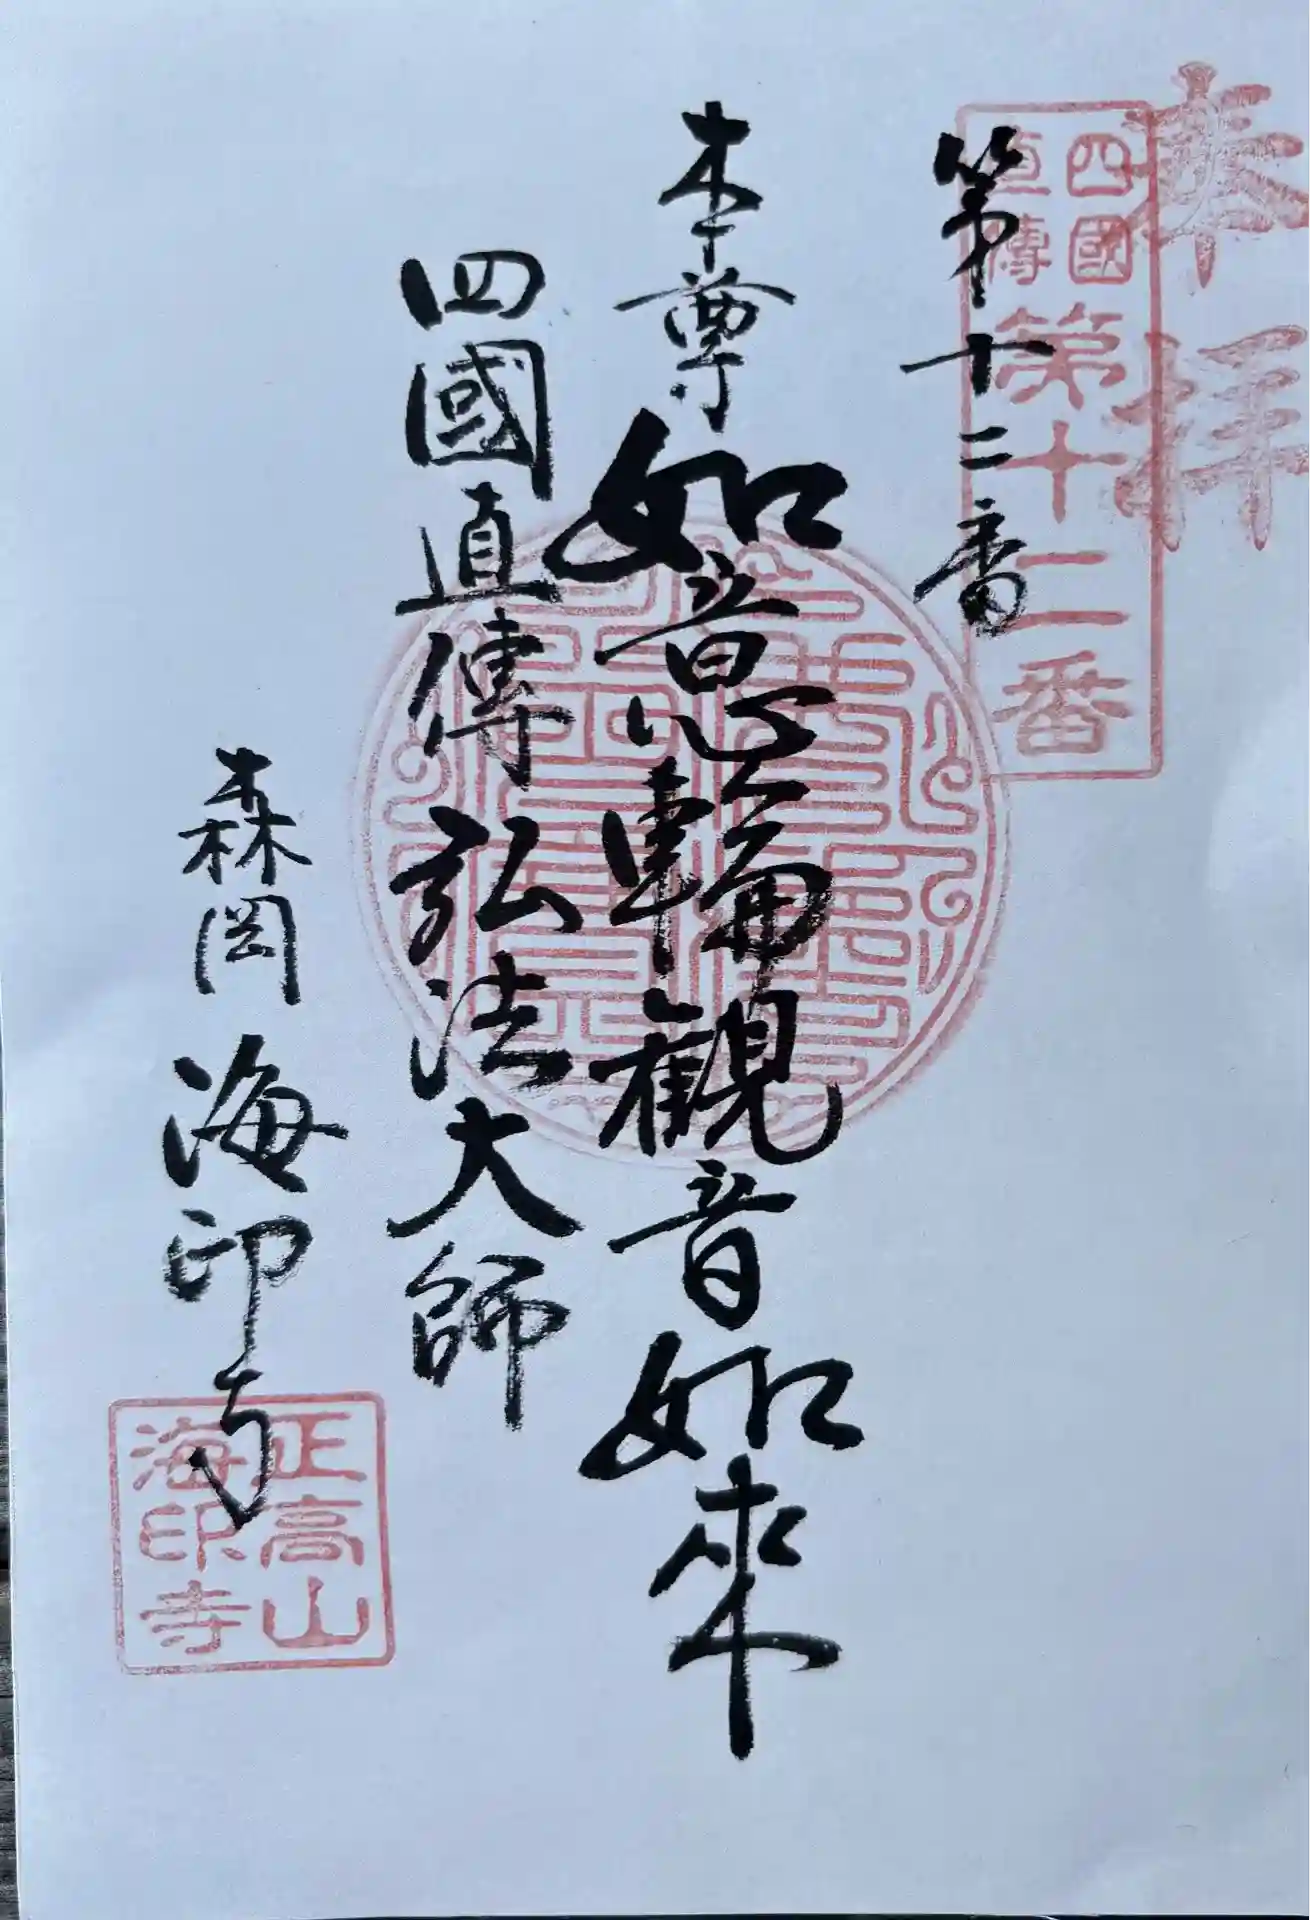 奉拝
四國
直傳
第十二番
第十二番
本尊 如意輪観音如来
四國直傳 弘法大師
森岡 海印寺
正高山
海印寺